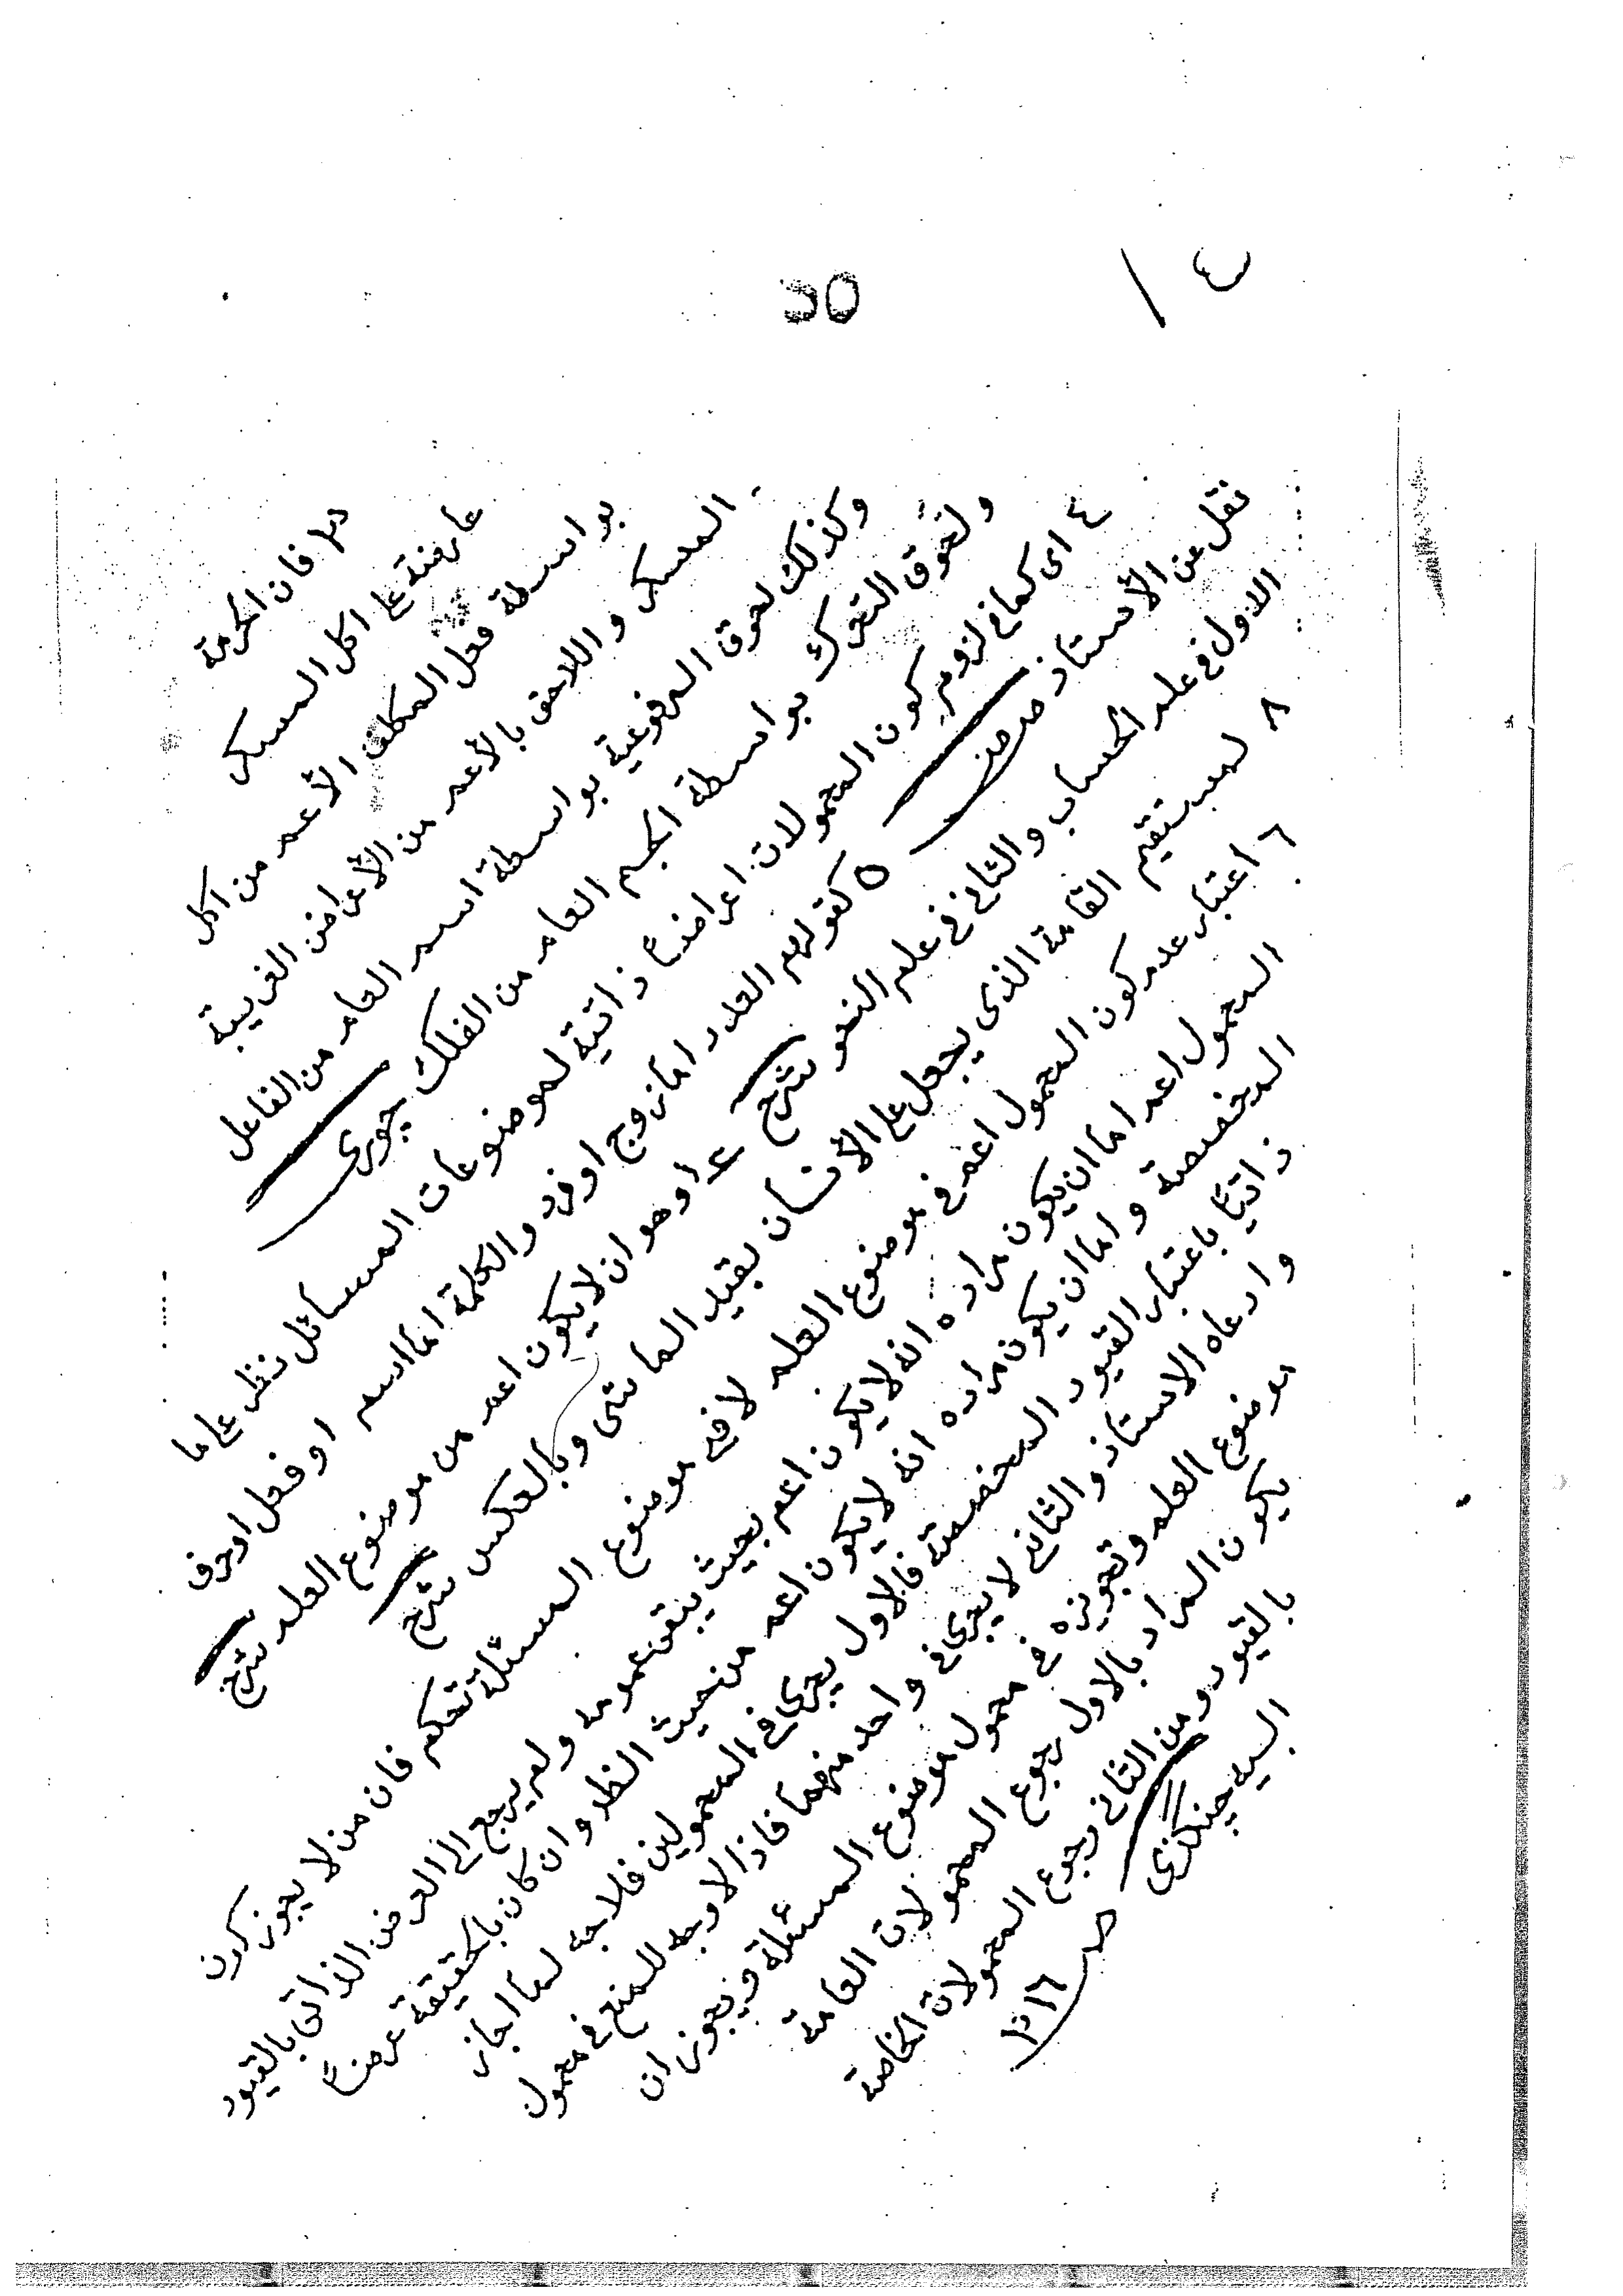 ٤ /
٥٥
فان الحرمة
عارضة على اكل المسكر
بواسطة فعل المكلف الأعم من اكل
المسكر واللاحق بالأعم من الأعراض الغريبة
وكذلك لحوق المرفوعية بواسطة اسم العام من الفاعل
ولحوق التحرك بواسطة الجسم العام من الفلك جورى
٤ اى كما في لزوم كون المحمولات اعراضاً ذاتية لموضوعات المسائل نظر على ما
نقل عن الأستاذ ٥ كقولهم العدد اما زوج او فرد والكلمة اما اسم او فعل او حرف
الاول في علم الحساب والثاني في علم النحو شرح وهو ان لا يكون اعم من موضوع العلم شرح
٨ لمستقيم القامة الذى يجعل على الأنسان بقيد الماشى وبالعكس شرح
٦ اعتبار عدم كون المحمول اعم في موضوع العلم لا في موضوع المسئلة تحكم فان من لا يجوز كون
المحمول اعم اما ان يكون مراده انه لا يكون اعم بحيث يبقى عمومه ولم يرجع الى العرض الذاتى بالقيود
المخصصة واما ان يكون مراده انه لا يكون اعم من حيث الظ وان كان بالحقيقة عرضاً
ذاتيّا باعتبار القيود المخصصة فالاول يجرى في المحمولين فلا جه لما اجاز
وادعاه الاستاذ والثاني لا يجرى في واحد منهما فاذا لا وجه للمنع في محمول
موضوع العلم وتجويزه في محمول موضوع المسئلة ويجوز ان
يكون المراد بالاول رجوع المحمولات العامة
بالقيود ومن الثانى رجوع المحمولات الخاصة
اليه جينكزى